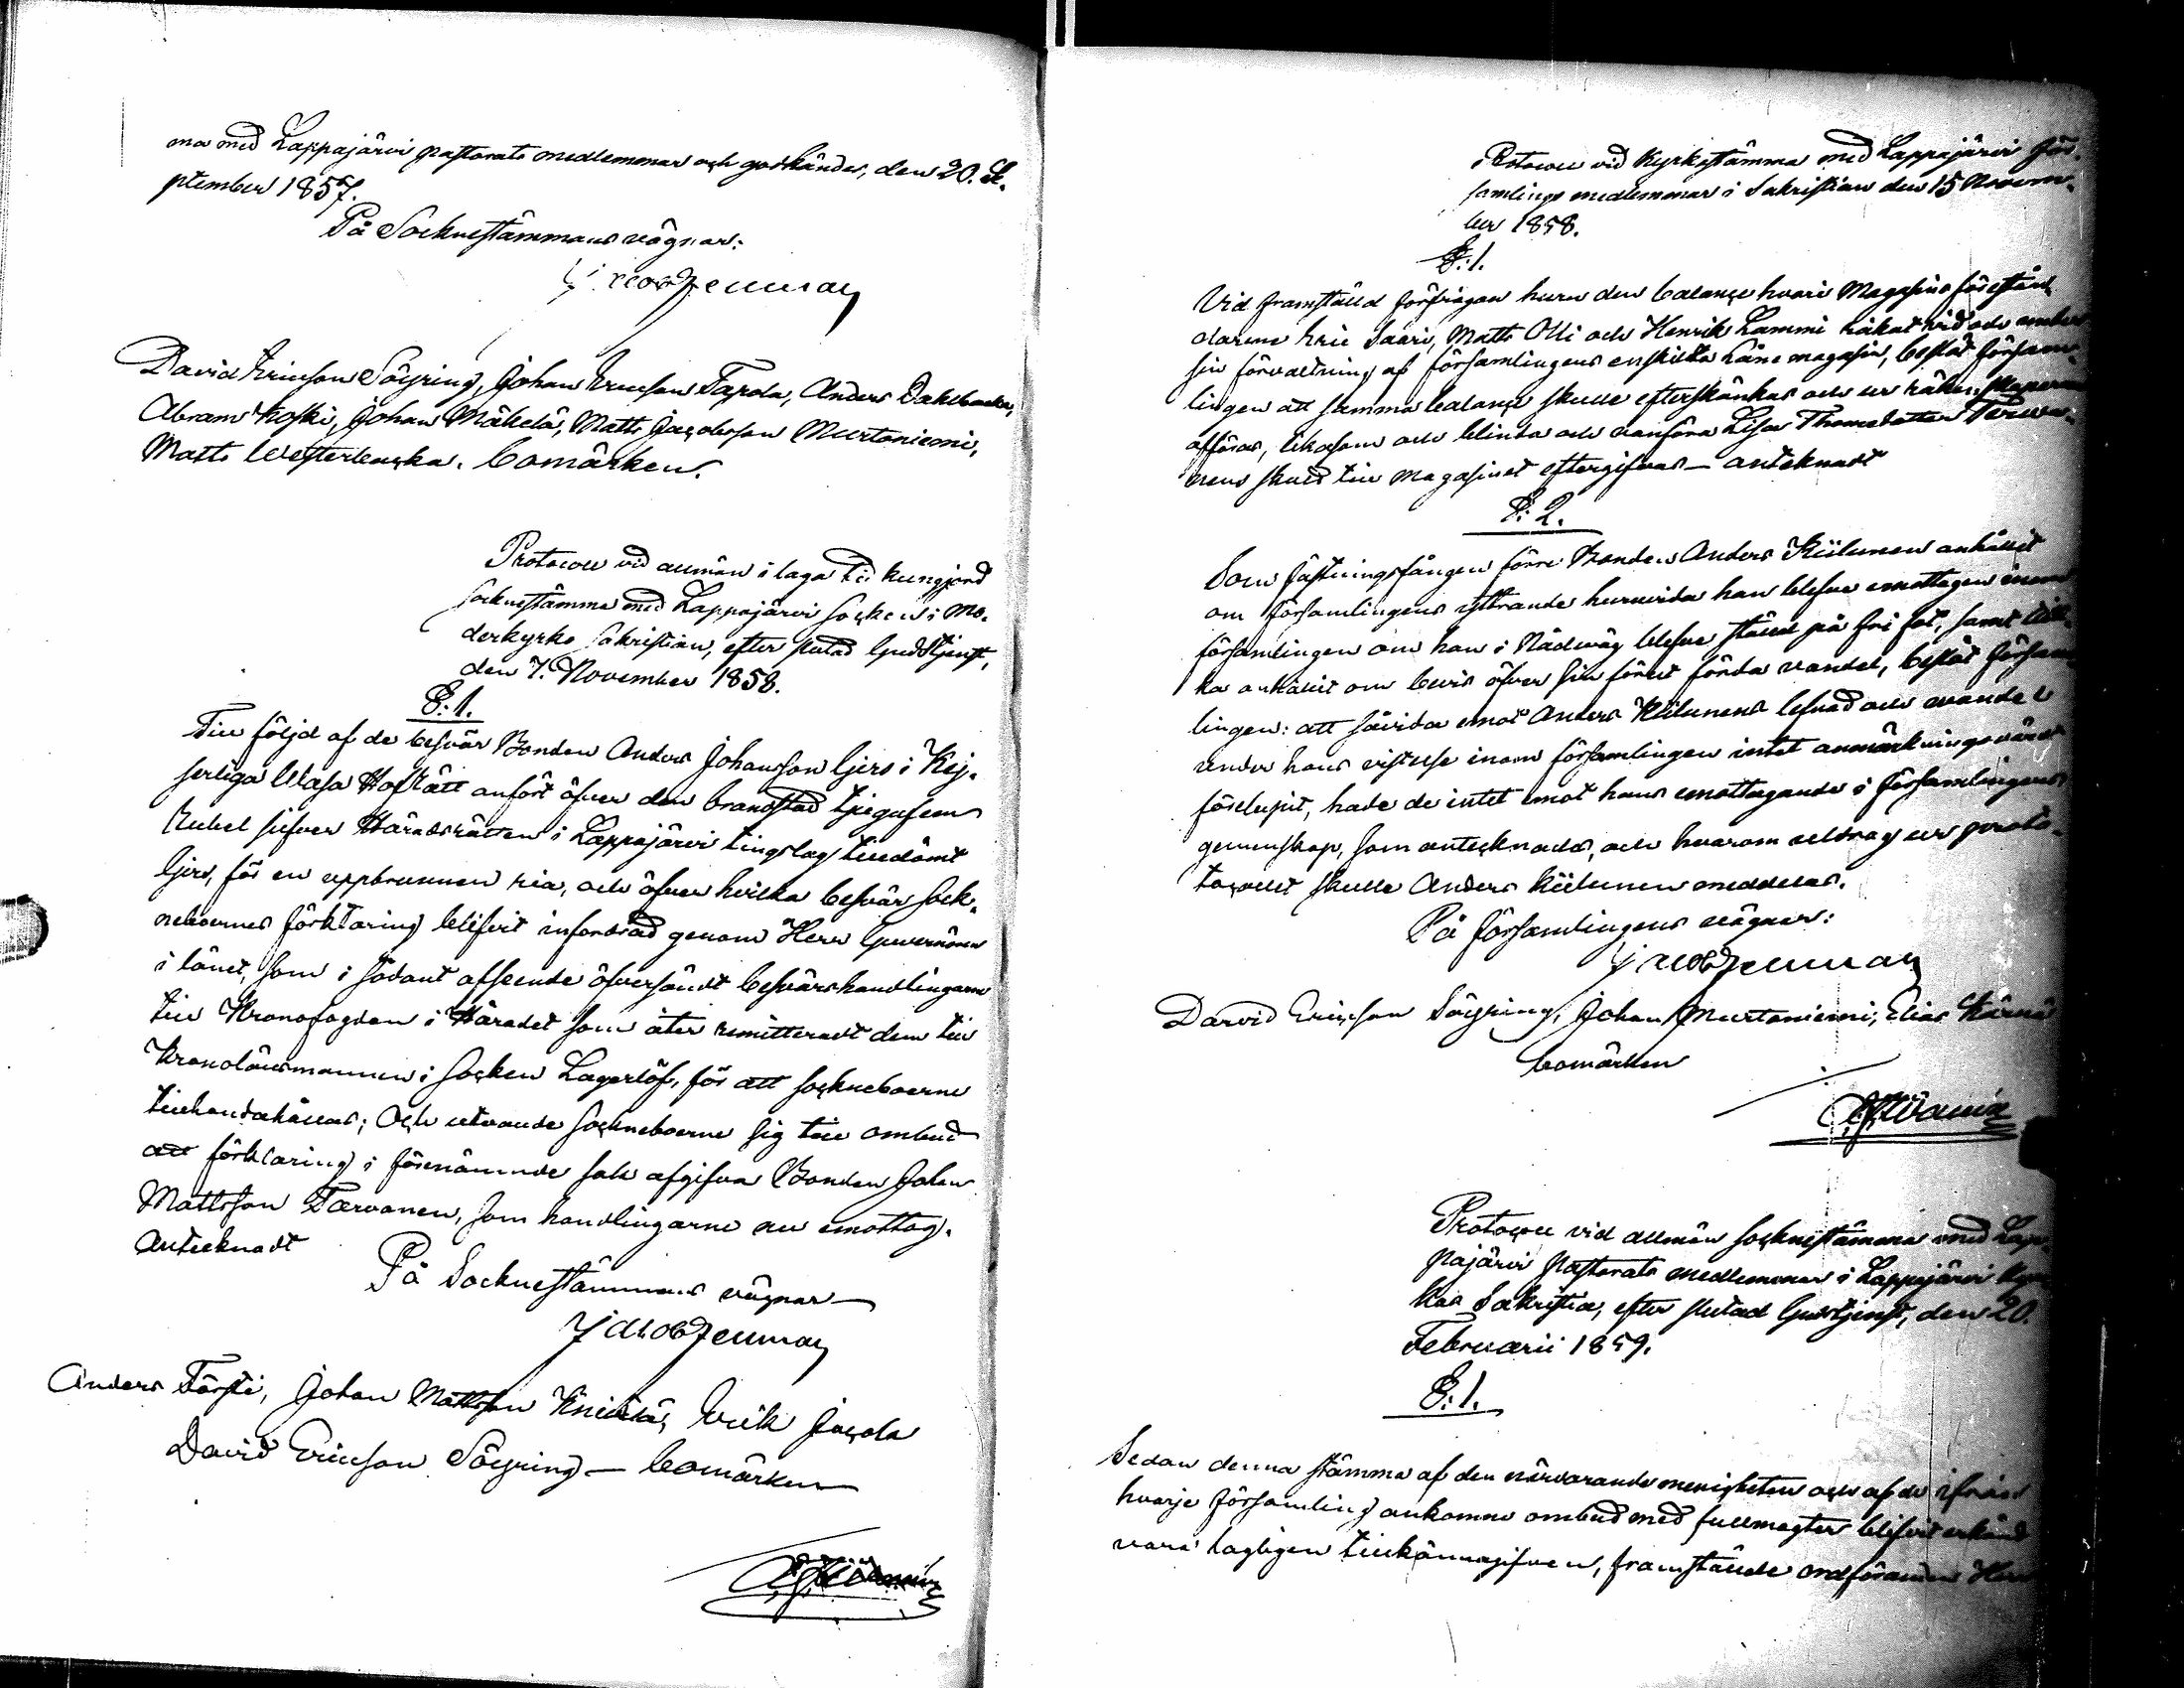 ma med Lappajärvi pastorats medlemmar och godkändes, den 20. Se-
ptember 1857.
På Socknestämmans vägnar:
David Ericsson Söyring, Johan Ericsson Tapola, Anders Dahlbacka,
Abram Koski, Johan Mäkelä, Matts Jacobsson Murtoniemi,
Matts Westerbacka. bomärken.
Protocoll vid allmän i laga tid kungjord
socknestämma med Lappajärvi Socken i Mo-
derkyrko Sakristian, efter slutad Gudstjenst,
den 7. November 1858.
§: 1.
Till följd af de besvär Bonden Anders Johansson Gers i Kej-
serliga Wasa Hofrätt anfört öfver den brandstod tjugufem
Rubel silfver Häradsrätten i Lappajärvi tingslag tilldömt
Gers, för en uppbrunnen ria, och öfver hvilka besvär Sock-
neboernes förklaring blifvit infordrad genom Herr Guvernören
i länet, som i sådant afseende öfversändt besvärshandlingarne
till Kronofogden i Häradet som åter remitteradt dem till
Kronolänsmannen i Socken Lagerlöf, för att sockneboerne
tillhandahållas; Och utvalde sockneboerne sig till ombud
att förklaring i förenämnde sak afgifva Bonden Johan
Mattsson Tarvanen, som handlingarne nu emottog.
Antecknadt
På Socknestämmans vägnar
Jacob Jenman
Anders Försti, Johan Mattsson Knihtilä, Erik Jacola
David Ericsson Söyring — bomärken
Protocoll vid Kyrkostämma med Lappajärvi För-
samlings medlemmar i Sakristian den 15 Novem-
ber 1858.
§: 1.
Vid framställd förfrågan huru den balance hvari Magasins förestån-
darene Eric Saari, Matts Olli och Henrik Lammi råkat vid och under
sin förvaltning af församlingens enskilta Låne magasin, beslöt Försam-
lingen att samma balance skulle efterskänkas och ur räkenskaperna
afföras, likasom och blinda och vanföra Lisa Thomsdotter
nens skuld till magasinet eftergifvas — antecknadt
§: 2.
Som fästningsfången förre Bonden Anders Kiilunen anhållit
om församlingens yttrande huruvida han blefve emottagen inom
församlingen om han i Nådeväg blefve ställd på fri fot, samt till-
ka anhållit om bevis öfver sin förut förda vandel, beslöt Försam-
lingen: att såvida emot Anders Kiilunens lefnad och vandel
under hans vistelse inom församlingen intet anmärkningsvärdt
förelupit, hade de intet emot hans emottagande i Församlingens
gemenskap, som antecknades, och hvarom utdrag ur proto-
tocollet skulle Anders Kiilunen meddelas.
På församlingens vägnar:
Jacob Jenman
David Ericsson Söyring, Johan Murtoniemi, Elias Kärnä
bomärken
Protocoll vid allmän Socknestämma med Lap-
pajärvi Pastorats medlemmar i Lappajärvi Kyr-
kas Sakristia, efter slutad Gudstjenst, den 20.
Februarii 1859.
§: 1.
Sedan denna stämma af den närvarande menigheten och af de ifrån
hvarje församling ankomne ombud med fullmagter blifvit erkänd
vara lagligen tillkännagifven, framställde ordföranden Herr